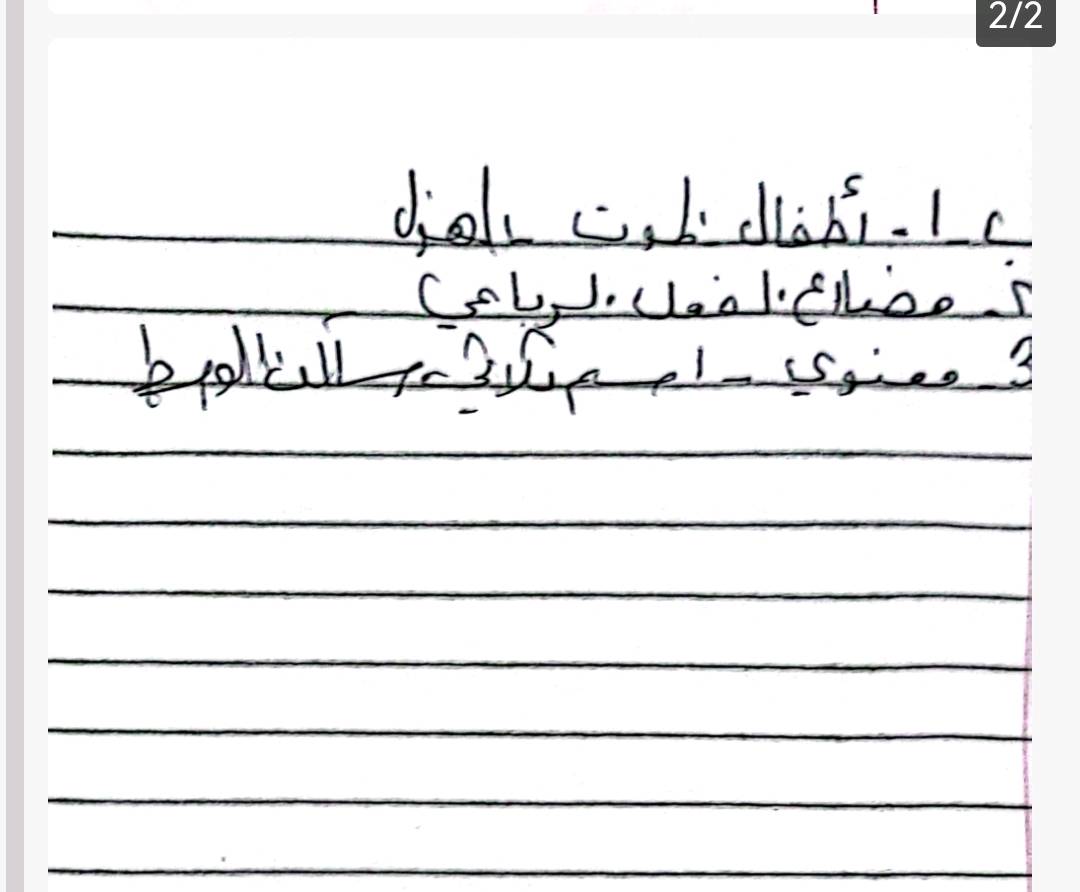 2/2
ج - 1 - أطفال تموت - الهزل
2 - مضارع الفعل الرباعي
3 - معنوي - اسم ثلاثي ساكن الوسط